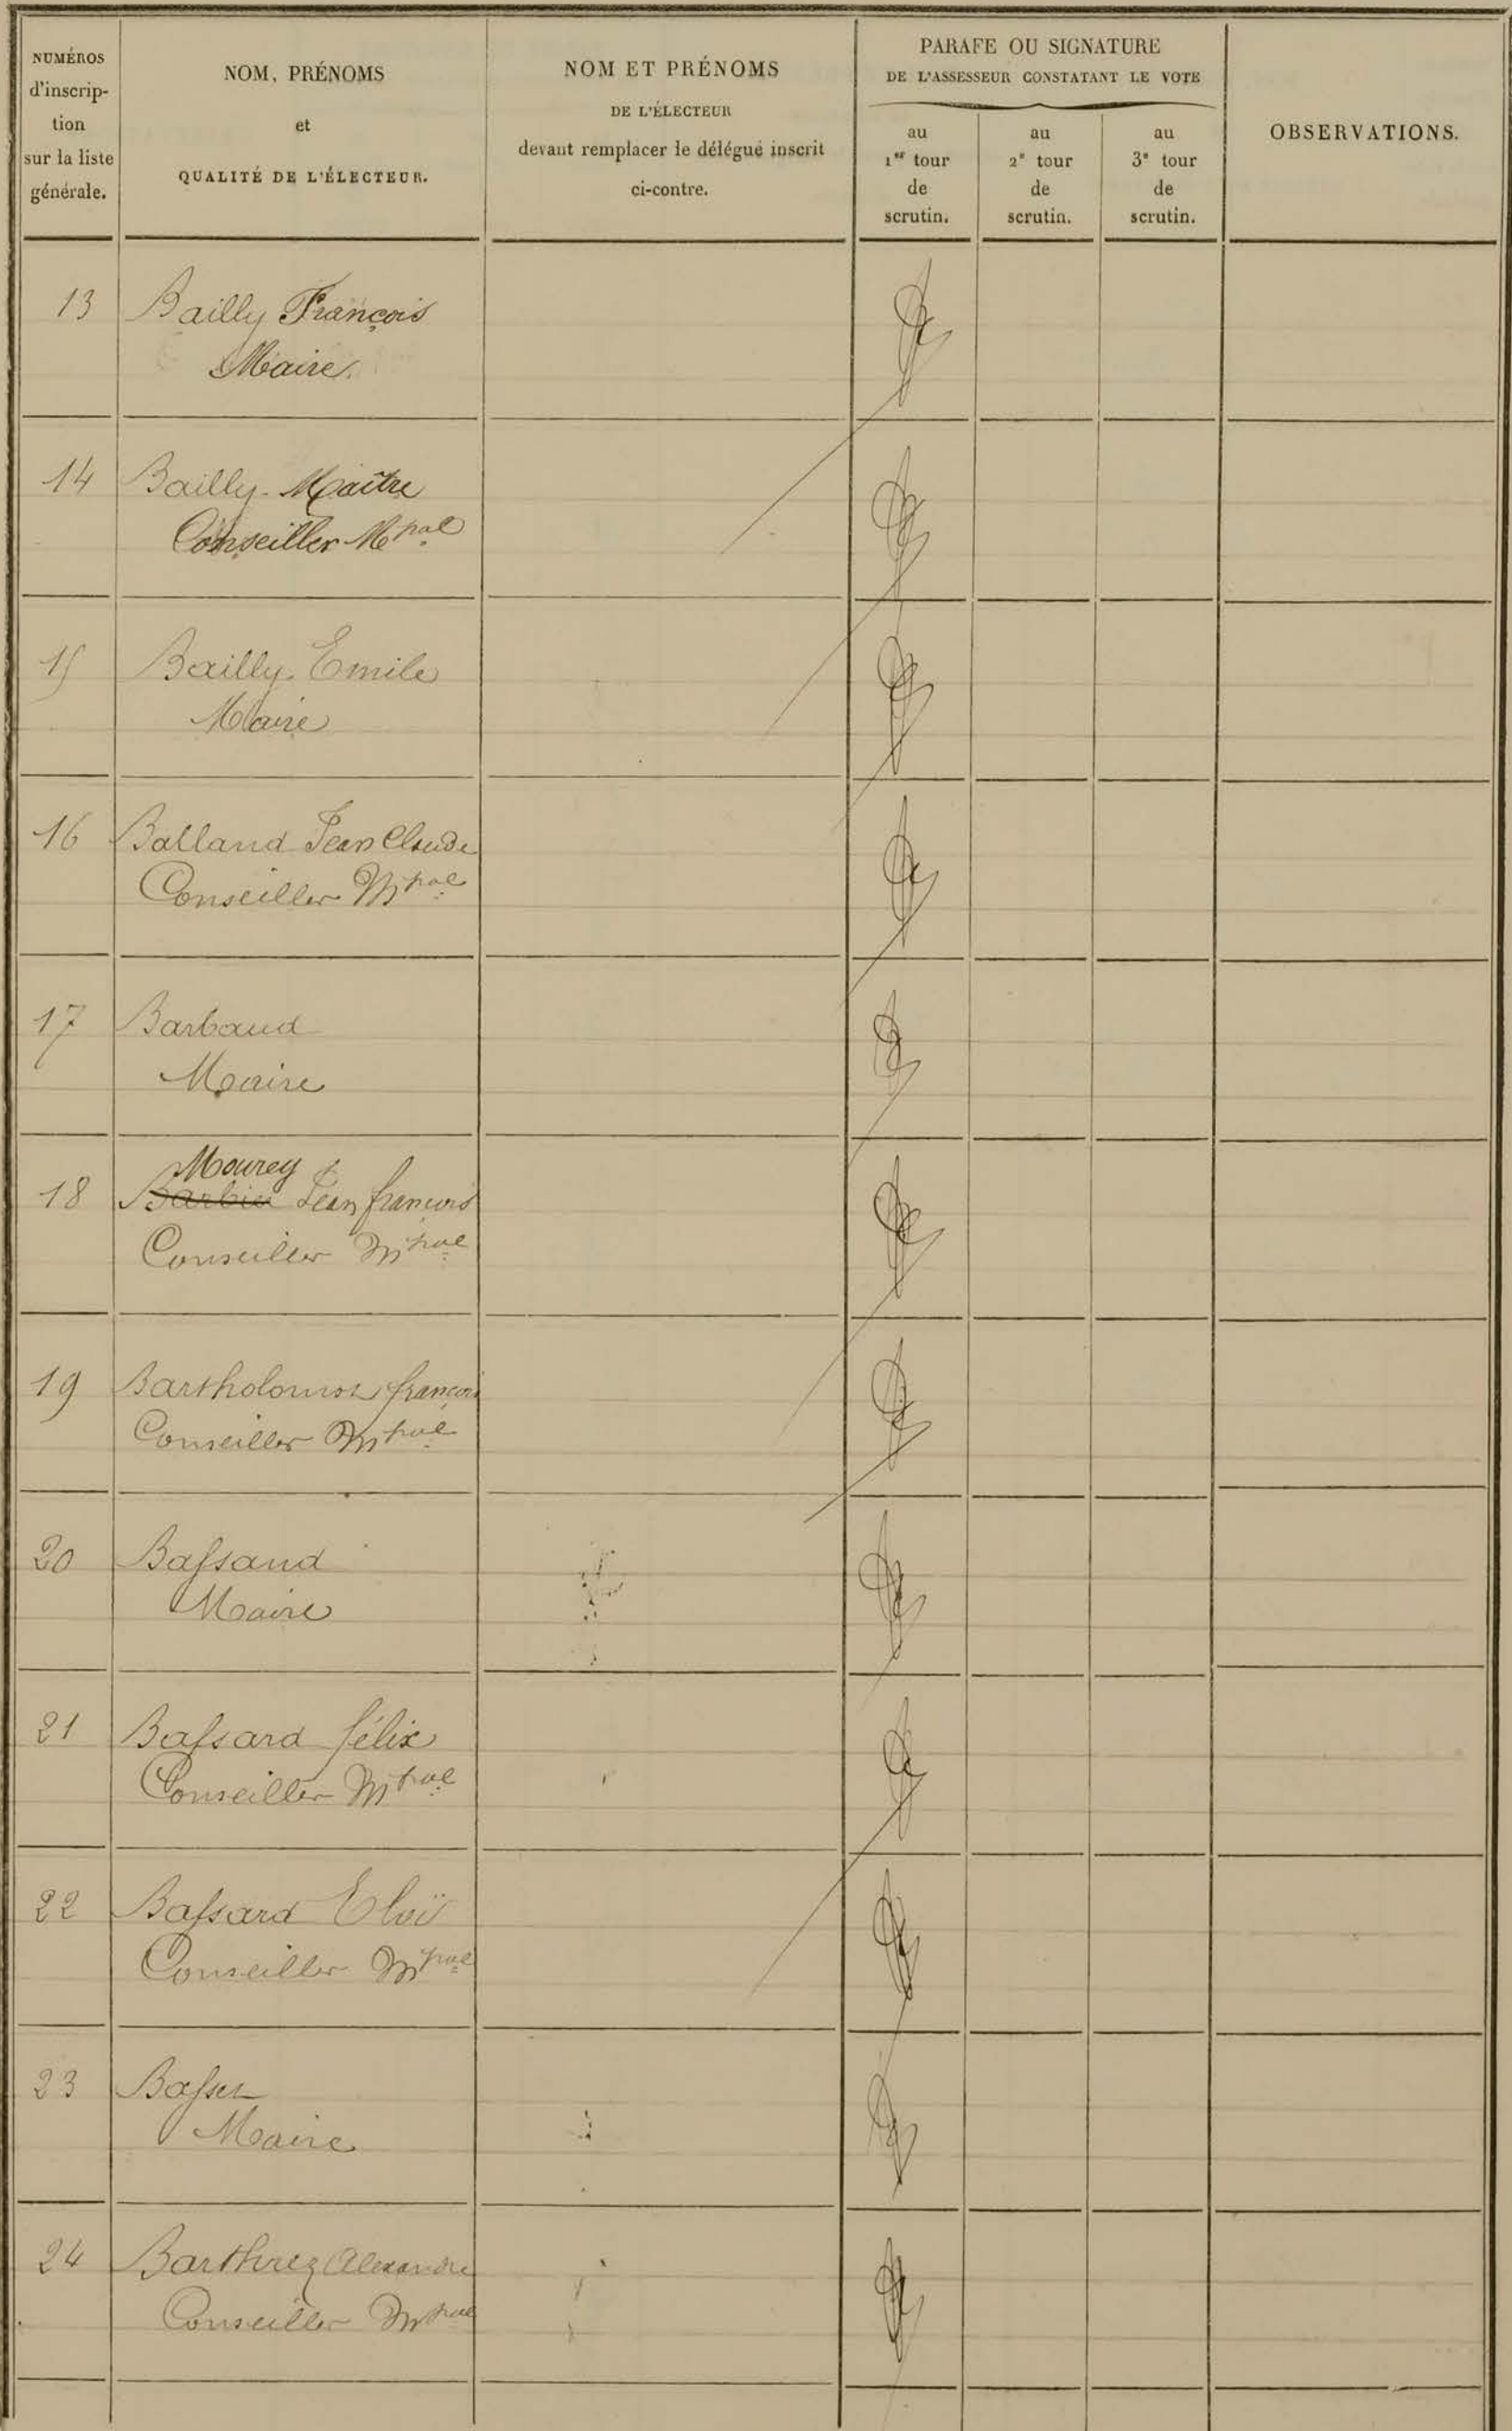 NUMÉROS
d'inscrip-
tion
sur la liste
générale.
NOM, PRÉNOMS
et
QUALITÉ DE L'ÉLECTEUR.
NOM ET PRÉNOMS
DE L'ÉLECTEUR
devant remplacer le délégué inscrit
ci-contre.
PARAFE OU SIGNATURE
DE L'ASSESSEUR CONSTATANT LE VOTE
au
1er tour
de
scrutin.
au
2e tour
de
scrutin.
au
3e tour
de
scrutin.
OBSERVATIONS.
13 Bailly François
Maire
14 Bailly-Maître
Conseiller Mpal
15 Bailly Emile
Maire
16 Balland Jean Claude
Conseiller Mpal
17 Barbaud
Maire
Mourey
18 Barbier Jean françois
Conseiller Mpal
19 françois
Conseiller Mpal
20 Bassand
Maire
21 Bassard félix
Conseiller Mpal
22 Bassard Eloï
Conseiller Mpal
23
Maire
24 Barthrez Alexandre
Conseiller Mpal